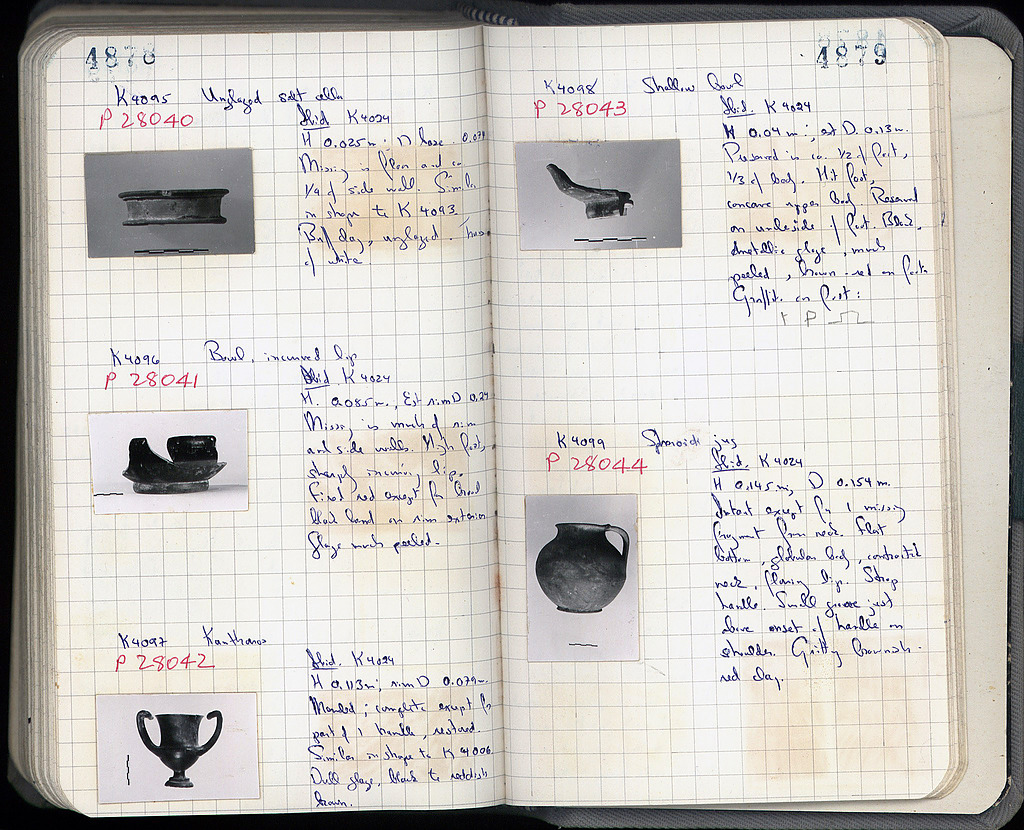 4878
K4095 Unglazed salt cellar
P 28040
Ibid K 4024
H 0.025m; D base 0.074
Missing is floor and ca
1/4 of side wall. Similar
in shape to K 4093.
Buff clay, unglazed.
of white
K4096 Bowl, incurved lip
P 28041
Ibid K 4024
H. 0.085m., Est rim D 0.24
Missing is much of rim
and side walls. High foot,
sharply incurving lip.
Fired red except for broad
black band on rim exterior
Glaze much peeled.
K4097 Kantharos
P 28042
Ibid. K4024
H 0.113m; rim D 0.079m.
Mended; complete except for
part of 1 handle, restored.
Similar in shape to K 4006.
Dull glaze, black to reddish
brown.
4879
K4098 Shallow bowl
P 28043
Ibid. K 4024
H 0.04 m; est D. 0.13m.
Preserved is ca. 1/2 of foot,
1/3 of body. foot,
concave upper body. Reserved
on underside of foot. Black,
metallic glaze, much
peeled, brown-red on foot.
Graffiti on foot:
K4099 Spheroid jug
P 28044
Ibid. K4024
H 0.145m; D 0.154 m.
Intact except for 1 missing
fragment from neck. Flat
bottom, globular body, contracted
neck, flaring lip. Strap
handle. Small groove just
above onset of handle on
shoulder. Gritty brownish-
red clay.